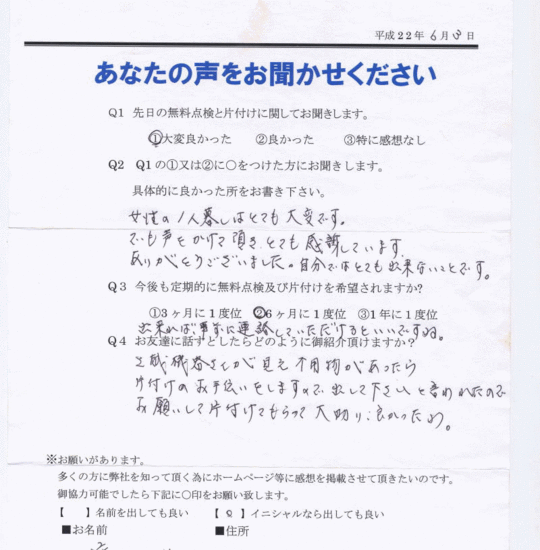 平成22年6月3日
あなたの声をお聞かせください
Q1 先日の無料点検と片付けに関してお聞きします。
①大変良かった ②良かった ③特に感想なし
Q2 Q1の①又は②に○をつけた方にお聞きします。
具体的に良かった所をお書き下さい。
女性の1人暮しはとても大変です。
でも声をかけて頂き、とても感謝しています
ありがとうございました。自分ではとても出来ないことです。
Q3 今後も定期的に無料点検及び片付けを希望されますか?
①3ヶ月に1度位 ②6ヶ月に1度位 ③1年に1度位
出来れば、事前に連絡していただけるといいですね。
Q4 お友達に話すとしたらどのように御紹介頂けますか?
機器さんが見え不用物があったら
片付けのお手伝いをしますので出して下さいと言われたので
お願いして片付けてもらって大助り、良かったわ。
※お願いがあります。
多くの方に弊社を知って頂く為にホームページ等に感想を掲載させて頂きたいのです。
御協力可能でしたら下記に○印をお願い致します。
【 】名前を出しても良い 【○】イニシャルなら出しても良い
■お名前 ■住所